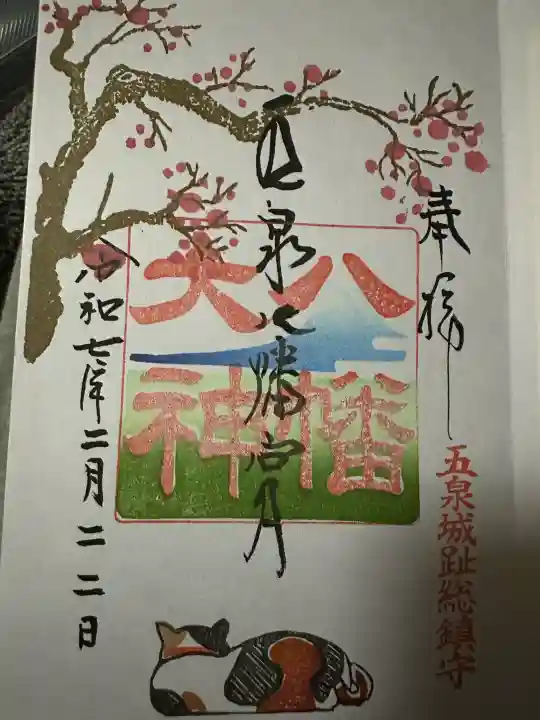 奉拝
五泉城趾総鎮守
五泉八幡宮
八幡
大神
令和七年二月二二日